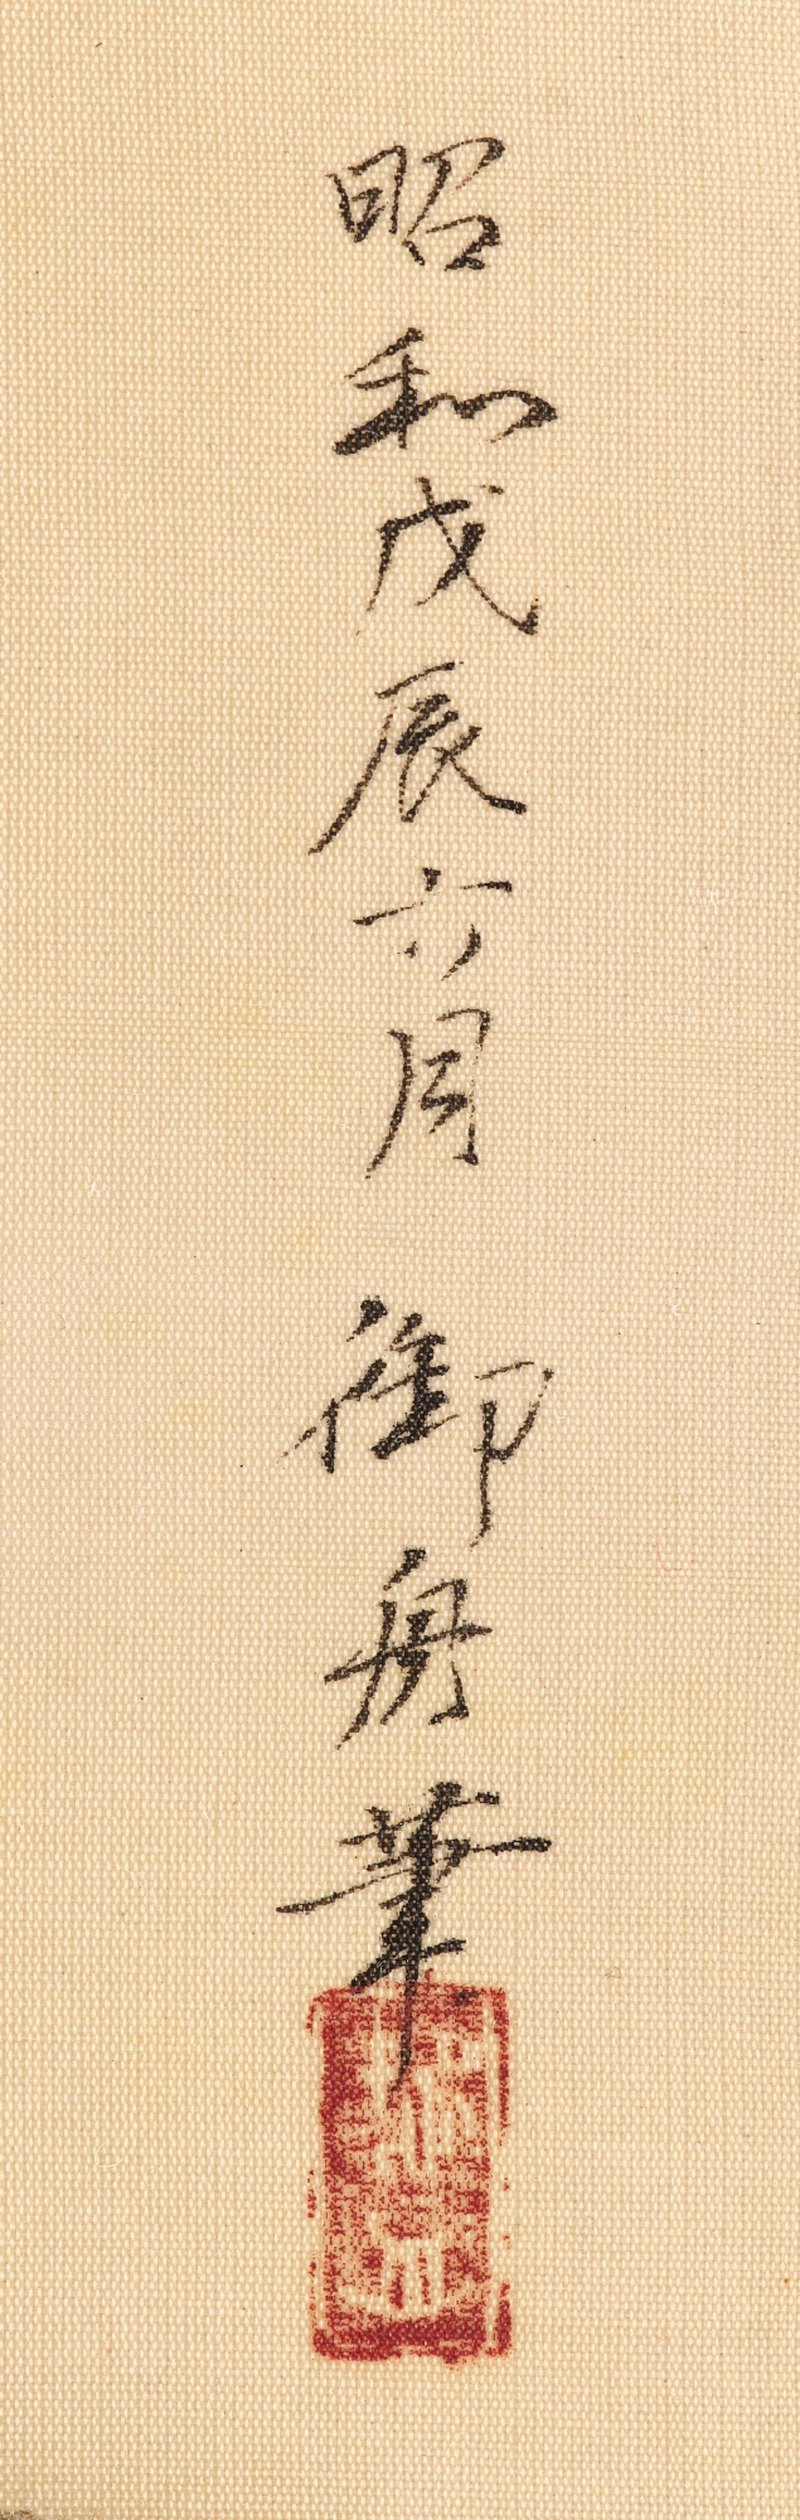 昭和戊辰六月 御舟筆